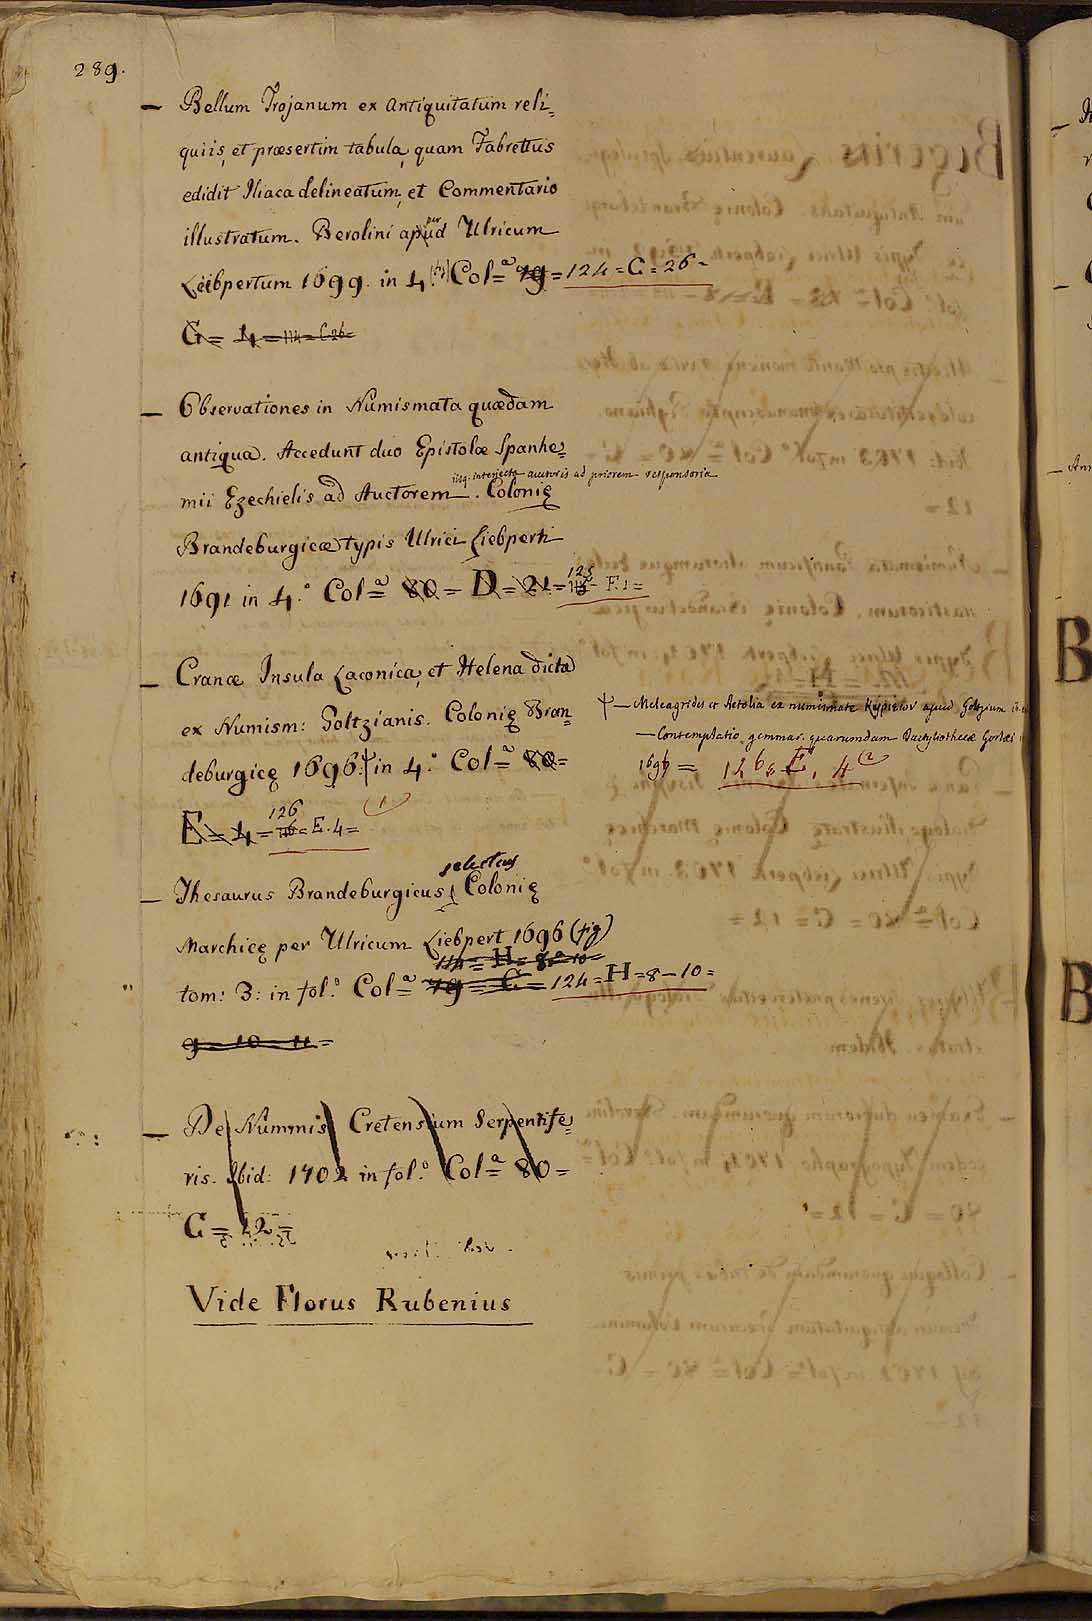 289.
— Bellum Trojanum ex Antiquitatum reli=
quiis, et præsertim tabula, quam Fabrettus
edidit Iliaca delineatum, et Commentario
illustratum. Berolini apud per Ulricum
Liebpertum 1699. in 4.° (fig) Col=a 79 = 124 = C = 26 =
G = 4 = 114 = C 26 =
— Observationes in Numismata quædam
antiqua. Accedunt duo Epistolæ Spanhe=
iisq. interjecta auctoris ad priorem responsoria
mii Ezechielis ad Auctorem. Colonię
Brandeburgicæ typis Ulrici Liebperti
1691 in 4.° Col=a 80 = D = 21 = 125 = E. 1 =
— Cranæ Insula Laconica, et Helena dicta
ex Numism: Goltzianis. Colonię Bran=
deburgicę 1696. in 4.° Col=a 80 =
E = 4 = 126 = E. 4 = (1)
— Meleagrides et Aetolia ex numismate Κυριεων apud Goltzium
— Contemplatio gemmar. quarumdam Dactyliothecæ Gorlæi
1697 = 126, E, 4 (2)
— Thesaurus Brandeburgicus selectus Colonię
Marchicę per Ulricum Liebpert 1696 (fig)
114 = H = 8 = 10 =
tom: 3: in fol.° Col=a 79 = C = 124 = H = 8 – 10 =
9 = 10 = 11 =
— De Nummis Cretensium Serpentife=
ris. Ibid: 1702 in fol.° Col=a 80 =
C = 12 =
Vide Florus Rubenius